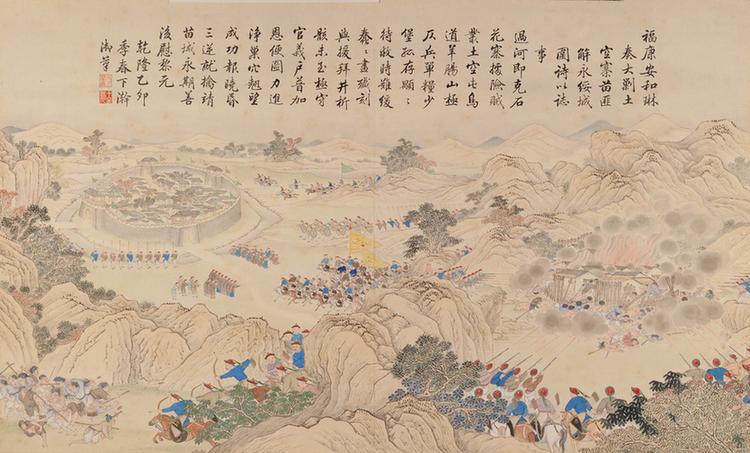 福康安和琳
奏大剿土
空寨苗匪
解永綏城
圍詩以誌
事
過河即克石
花寨據險賊
業土空屯烏
道羊腸山極
仄兵單糧少
堡孤存顒〻
待救時難緩
〻晝殲刻
與援拜井祈
未至極守
官義首加
恩便圖力進
淨巢穴翹望
成功報曉昏
三逆就擒靖
苗域永期善
後慰黎元
乾隆乙卯
季春下澣
御筆